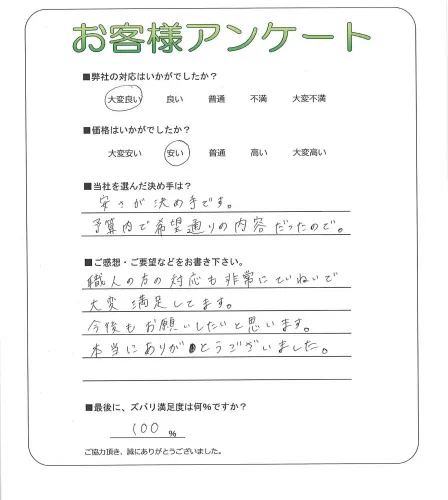 お客様アンケート
■弊社の対応はいかがでしたか？
大変良い 良い 普通 不満 大変不満
■価格はいかがでしたか？
大変安い 安い 普通 高い 大変高い
■当社を選んだ決め手は？
安さが決め手です。
予算内で希望通りの内容だったので。
■ご感想・ご要望などをお書き下さい。
職人の方の対応も非常にていねいで
大変満足してます。
今後もお願いしたいと思います。
本当にありがとうございました。
■最後に、ズバリ満足度は何%ですか？
100 %
ご協力頂き、誠にありがとうございました。